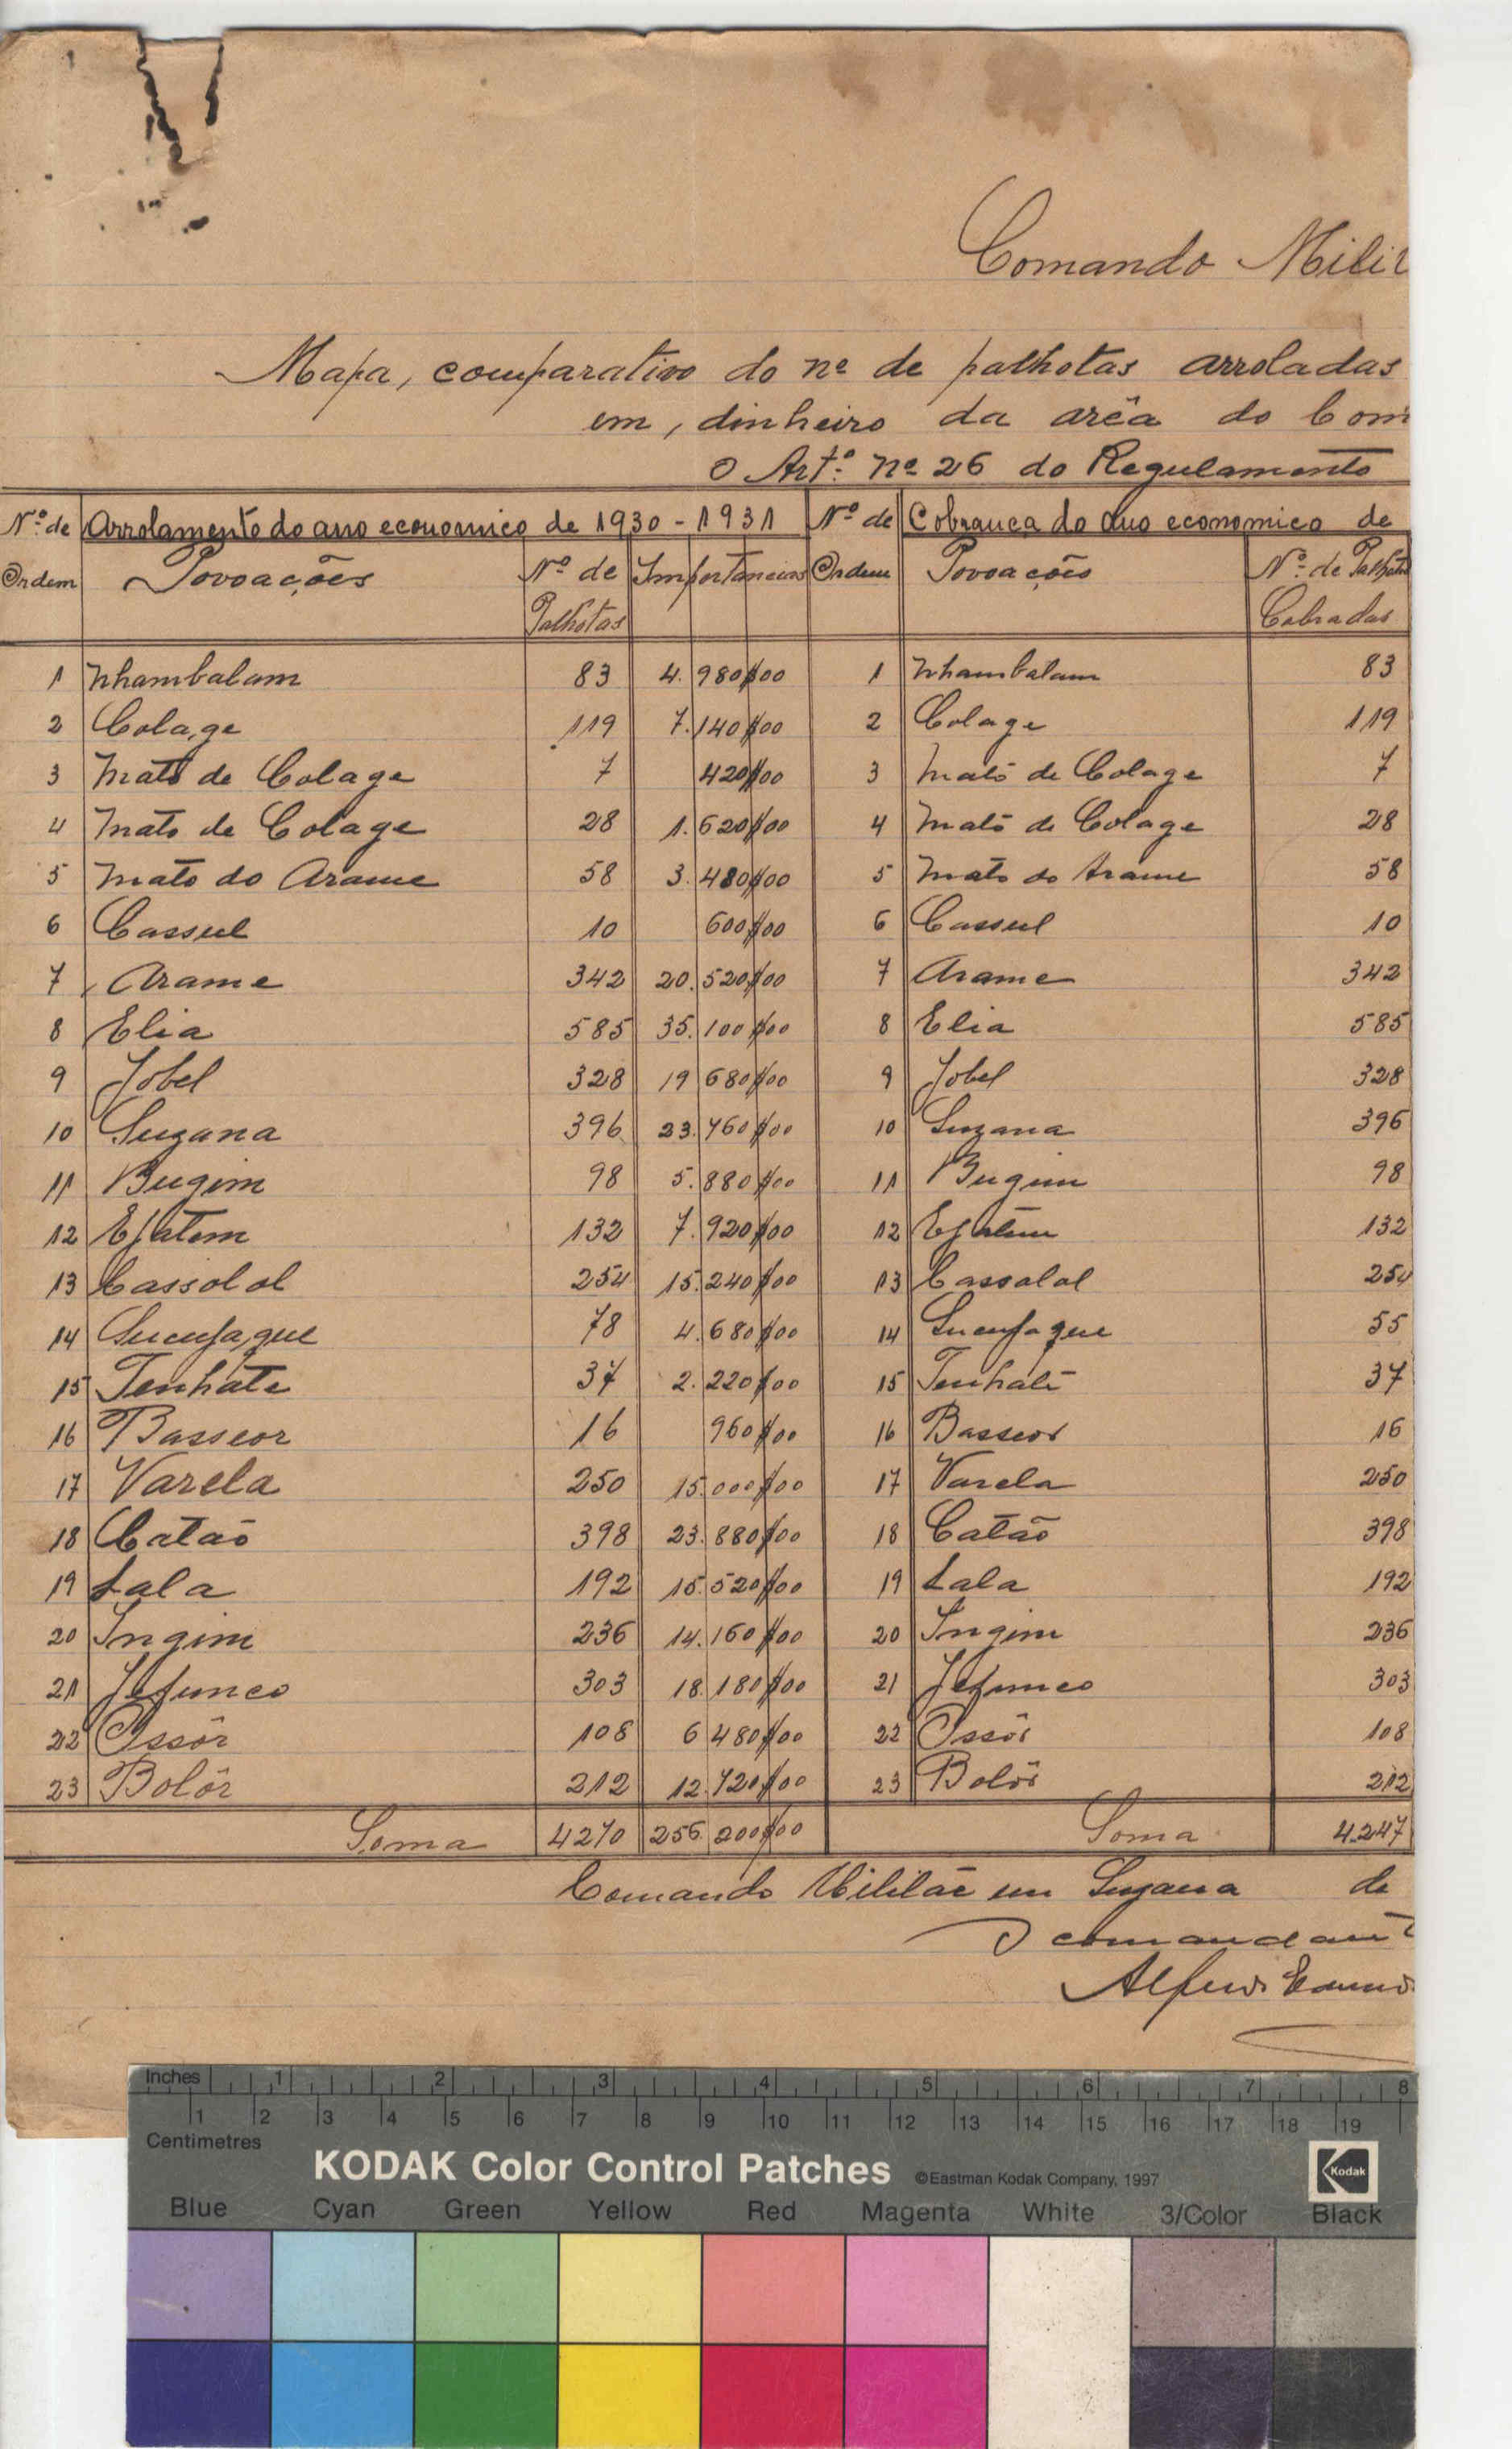 Comando Milit
Mapa, comparativo do nº de palhotas arroladas
em, dinheiro da arêa do Com
O Artº. nº 26 do Regulamento
Nº. de Ordem | Arrolamento do ano economico de 1930 - 1931 | Nº de Ordem | Cobrança do ano economico de
Povoações | Nº de Palhotas | Importancias | Povoações | Nº. de Palhotas Cobradas
1 Nhambalam 83 4.980$00 1 Nhambalam 83
2 Colage 119 7.140$00 2 Colage 119
3 Mato de Colage 7 420$00 3 Mato de Colage 7
4 Mato de Colage 28 1.620$00 4 Mato de Colage 28
5 Mato do Arame 58 3.480$00 5 Mato do Arame 58
6 Cassul 10 600$00 6 Cassul 10
7 Arame 342 20.520$00 7 Arame 342
8 Elia 585 35.100$00 8 Elia 585
9 Jobel 328 19 680$00 9 Jobel 328
10 Suzana 396 23.760$00 10 Suzana 396
11 Bugim 98 5.880$00 11 Bugim 98
12 Ejatem 132 7.920$00 12 Ejatem 132
13 Cassolol 254 15.240$00 13 Cassolol 254
14 Sucujaque 78 4.680$00 14 Sucujaque 55
15 Tenhate 37 2.220$00 15 Tenhate 37
16 Basseor 16 960$00 16 Basseor 16
17 Varela 250 15.000$00 17 Varela 250
18 Catão 398 23.880$00 18 Catão 398
19 Lala 192 15.520$00 19 Lala 192
20 Ingim 236 14.160$00 20 Ingim 236
21 Jefunco 303 18.180$00 21 Jefunco 303
22 Ossôr 108 6 480$00 22 Ossôr 108
23 Bolôr 212 12.720$00 23 Bolôr 212
Soma 4270 256.200$00 Soma 4.247
Comando Militar em Suzana de
O comandant
Alfredo
Inches 1 2 3 4 5 6 7 8
1 2 3 4 5 6 7 8 9 10 11 12 13 14 15 16 17 18 19
Centimetres
KODAK Color Control Patches ©Eastman Kodak Company, 1997 Kodak
Blue Cyan Green Yellow Red Magenta White 3/Color Black